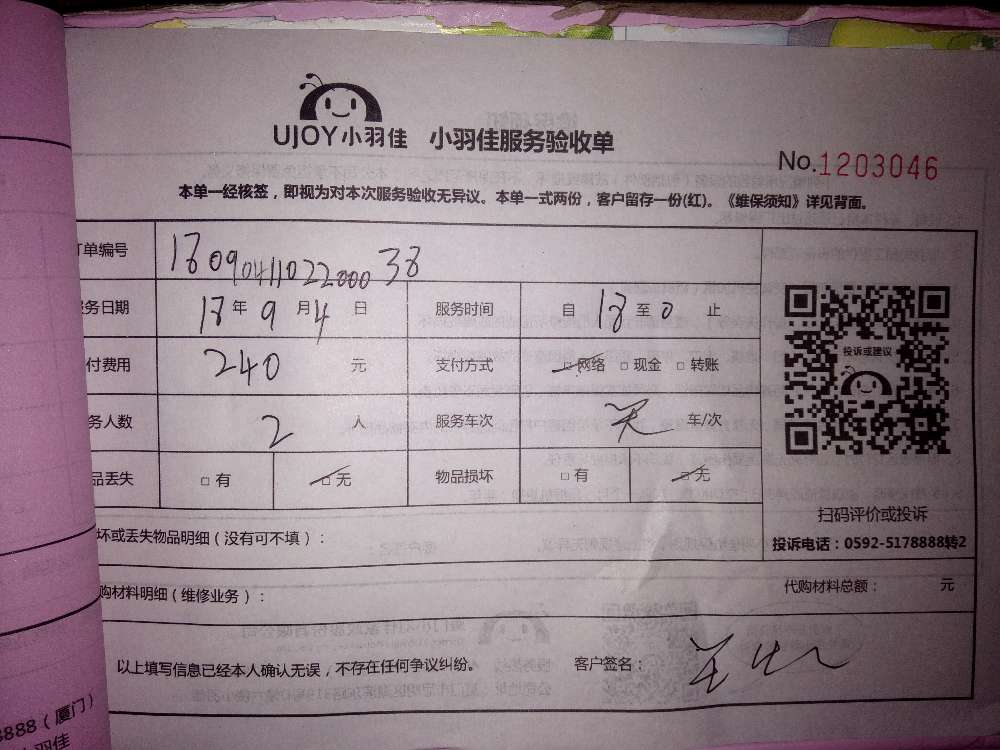 UJOY小羽佳 小羽佳服务验收单
No.1203046
本单一经核签，即视为对本次服务验收无异议。本单一式两份，客户留存一份(红)。《维保须知》详见背面。
单编号 18090411022000038
务日期 18年9月4日 服务时间 自18至0止
付费用 240元 支付方式 □网络 □现金 □转账
务人数 2人 服务车次 车/次
品丢失 □有 □无 物品损坏 □有 □无
投诉或建议
扫码评价或投诉
投诉电话：0592-5178888转2
坏或丢失物品明细（没有可不填）：
购材料明细（维修业务）： 代购材料总额： 元
以上填写信息已经本人确认无误，不存在任何争议纠纷。 客户签名：
8888（厦门）
小羽佳